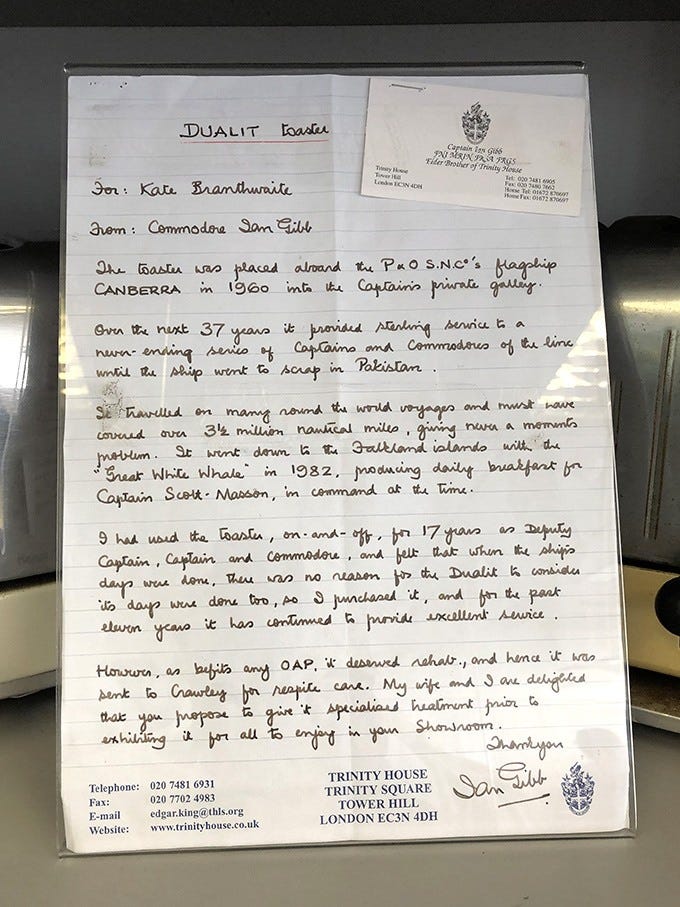 DUALIT toaster
Captain Ian Gibb
FNI MRIN FRSA FRGS
Elder Brother of Trinity House
Trinity House
Tower Hill
London EC3N 4DH
Tel: 020 7481 6905
Fax: 020 7480 7662
Home Tel: 01672 870697
Home Fax: 01672 870697
For: Kate Branthwaite
From: Commodore Ian Gibb
The toaster was placed aboard the P&O S.N.Co's flagship
CANBERRA in 1960 into the Captain's private galley.
Over the next 37 years it provided sterling service to a
never-ending series of Captains and Commodores of the line
until the ship went to scrap in Pakistan.
It travelled on many round the world voyages and must have
covered over 3½ million nautical miles, giving never a moments
problem. It went down to the Falkland islands with the
"Great White Whale" in 1982, producing daily breakfast for
Captain Scott-Masson, in command at the time.
I had used the toaster, on-and-off, for 17 years as Deputy
Captain, Captain and Commodore, and felt that when the ship's
days were done, there was no reason for the Dualit to consider
its days were done too, so I purchased it, and for the past
eleven years it has continued to provide excellent service.
However, as befits any OAP, it deserved rehab., and hence it was
sent to Crawley for respite care. My wife and I are delighted
that you propose to give it specialised treatment prior to
exhibiting it for all to enjoy in your Showroom.
Thankyou
Ian Gibb
Telephone: 020 7481 6931
Fax: 020 7702 4983
E-mail edgar.king@thls.org
Website: www.trinityhouse.co.uk
TRINITY HOUSE
TRINITY SQUARE
TOWER HILL
LONDON EC3N 4DH